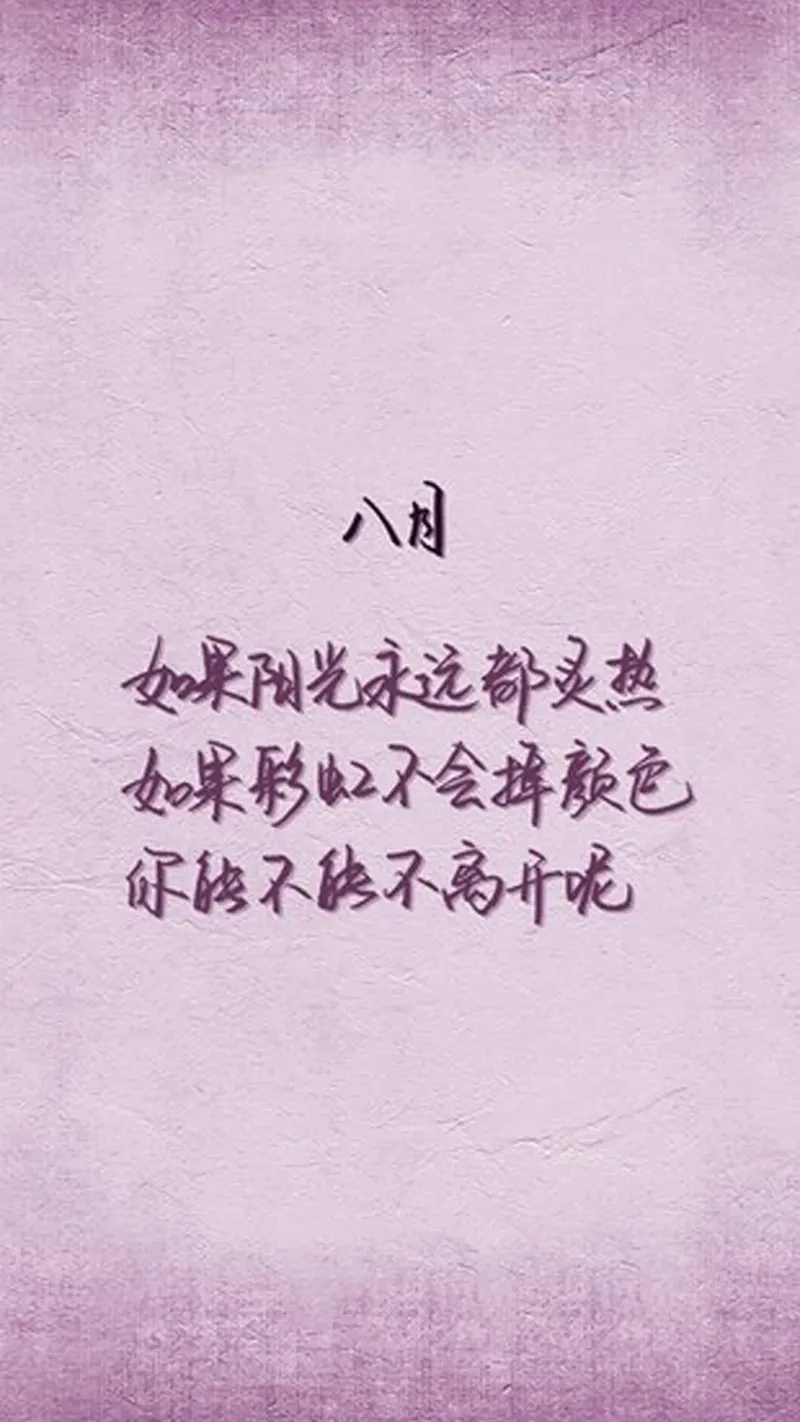 八月
如果阳光永远都炙热
如果彩虹不会掉颜色
你能不能不离开呢